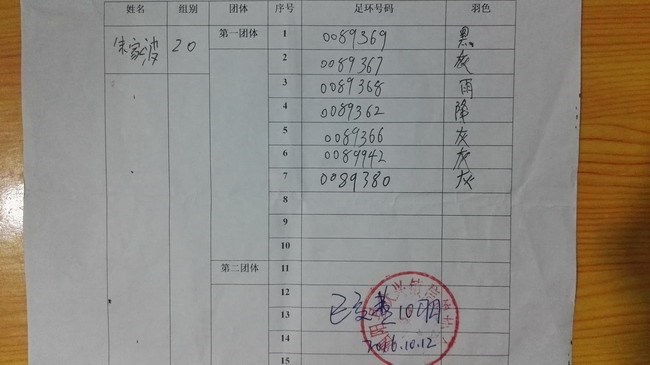 姓名 组别 团体 序号 足环号码 羽色
朱家波 20 第一团体 1 0089369 黑
2 0089367 灰
3 0089368 雨
4 0089362 降
5 0089366 灰
6 0089942 灰
7 0089380 灰
8
9
10
第二团体 11
12
13
14
2016.10.12
15